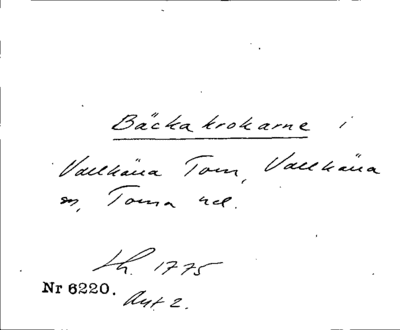 Bäckakrokarne i
Vallkärra Torn, Vallkärra
sn, Torna hd.
Lh. 1775
Nr 6220.
Akt 2.